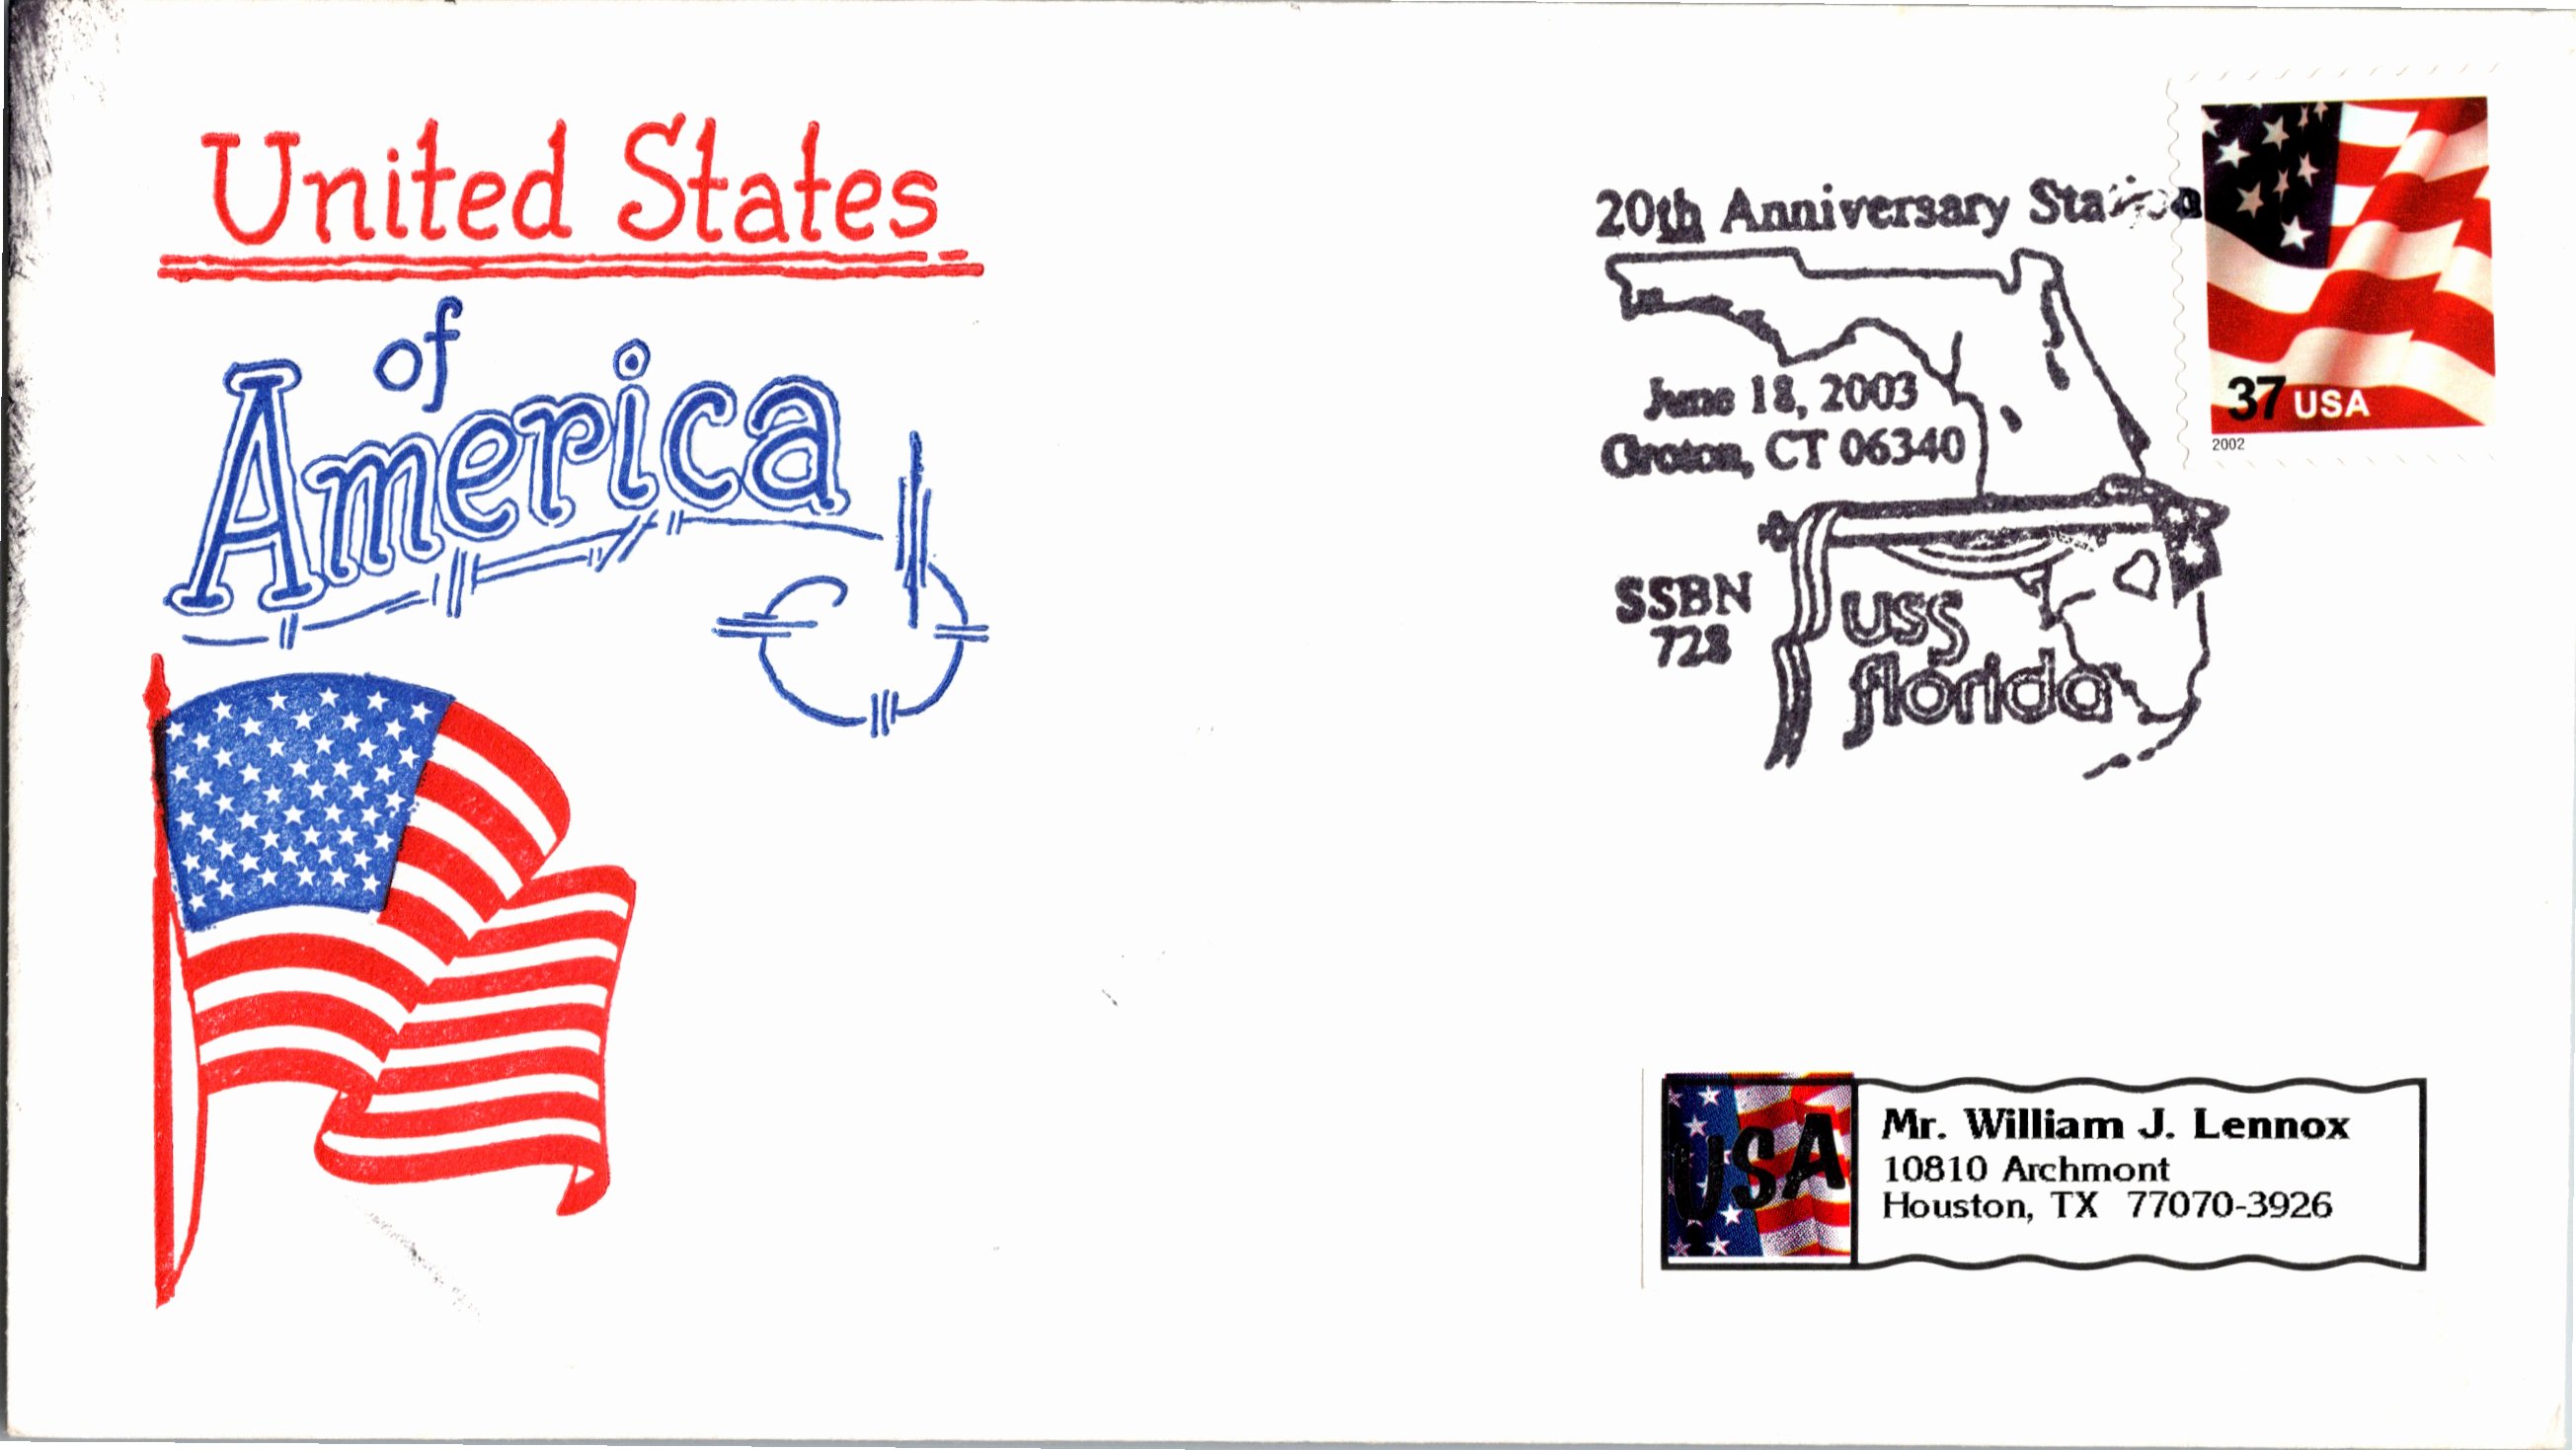 United States
of
America
20th Anniversary Station
June 18, 2003
Groton, CT 06340
SSBN
728
USS
florida
37 USA
2002
USA
Mr. William J. Lennox
10810 Archmont
Houston, TX 77070-3926